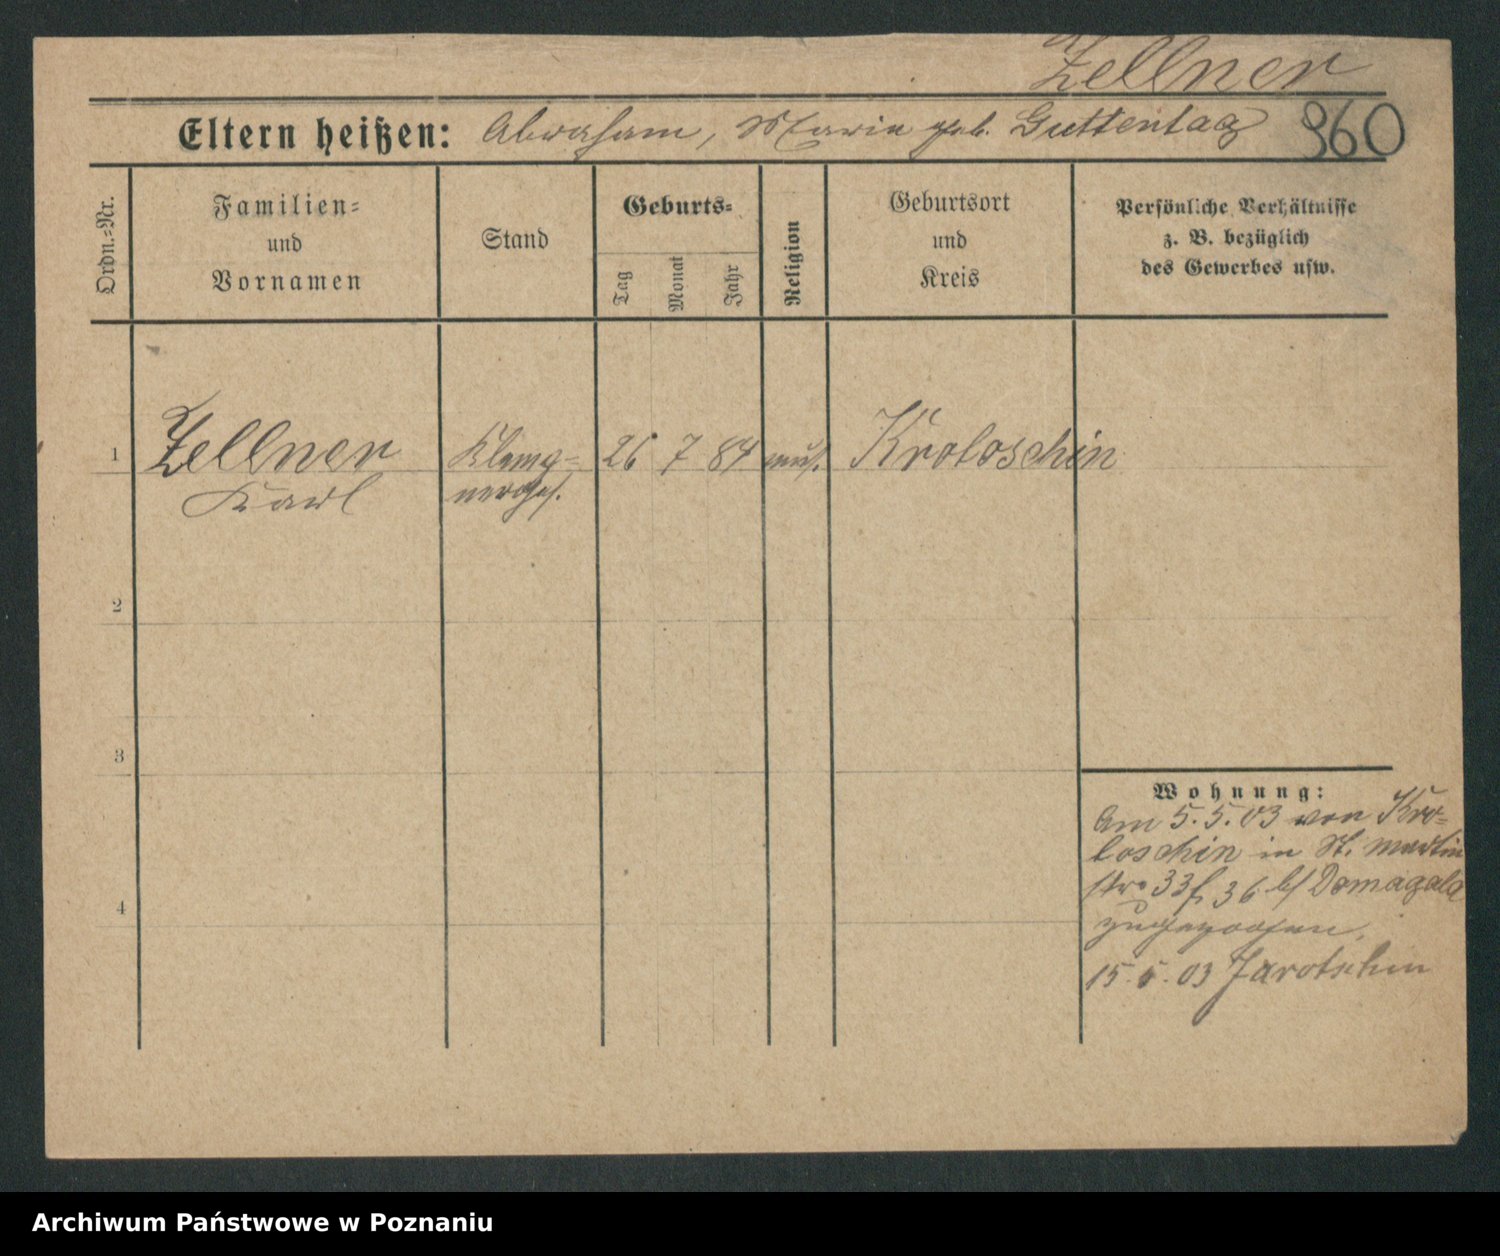 Zellner
Eltern heißen: Abraham, Marie geb. Guttentag 960
Ordn.-Nr.
Familien-
und
Vornamen
Stand
Geburts-
Tag
Monat
Jahr
Religion
Geburtsort
und
Kreis
Persönliche Verhältnisse
z. B. bezüglich
des Gewerbes usw.
1 Zellner Klemp- 26 7 84 mos. Krotoschin
Karl nerges.
2
3
4
Wohnung:
Am 5.5.03 von Kro-
toschin in St. Martin
str. 33 36 b/ Domagala
zugezogen.
15. 5. 03 Jarotschin
Archiwum Państwowe w Poznaniu